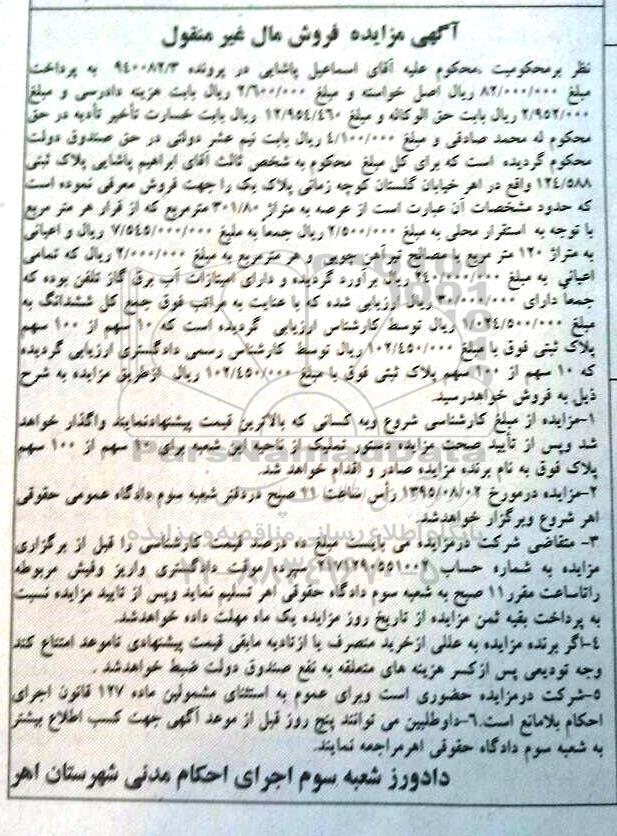 آگهی مزایده فروش مال غیر منقول
نظر برمحکومیت محکوم علیه آقای اسماعیل پاشایی در پرونده ۹۴۰۰۸۲/۳ به پرداخت
مبلغ ۸۲/۰۰۰/۰۰۰ ریال اصل خواسته و مبلغ ۲/۶۰۰/۰۰۰ ریال بابت هزینه دادرسی و مبلغ
۲/۹۵۲/۰۰۰ ریال بابت حق الوکاله و مبلغ ۱۲/۹۵۴/۴۶۰ ریال بابت خسارت تأخیر تأدیه در حق
محکوم له محمد صادقی و مبلغ ۴/۱۰۰/۰۰۰ ریال بابت نیم عشر دولتی در حق صندوق دولت
محکوم گردیده است که برای کل مبلغ محکوم به شخص ثالث آقای ابراهیم پاشایی پلاک ثبتی
۱۲۴/۵۸۸ واقع در اهر خیابان گلستان کوچه زمانی پلاک یک را جهت فروش معرفی نموده است
که حدود مشخصات آن عبارت است از عرصه به متراژ ۳۰۱/۸۰ مترمربع که از قرار هر متر مربع
با توجه به استقرار محلی به مبلغ ۲/۵۰۰/۰۰۰ ریال جمعا به مبلغ ۷/۵۴۵/۰۰۰/۰۰۰ ریال و اعیانی
به متراژ ۱۲۰ متر مربع با مصالح تیرآهن چوبی و هر مترمربع به مبلغ ۲/۰۰۰/۰۰۰ ریال که تمامی
اعیانی به مبلغ ۲۴۰/۰۰۰/۰۰۰ ریال برآورد گردیده و دارای امتیازات آب برق گاز تلفن بوده که
جمعا دارای ۳۰/۰۰۰/۰۰۰ ریال ارزیابی شده که با عنایت به مراتب فوق جمع کل ششدانگ به
مبلغ ۱/۰۲۴/۵۰۰/۰۰۰ ریال توسط کارشناس ارزیابی گردیده است که ۱۰ سهم از ۱۰۰ سهم
پلاک ثبتی فوق با مبلغ ۱۰۲/۴۵۰/۰۰۰ ریال توسط کارشناس رسمی دادگستری ارزیابی گردیده
که ۱۰ سهم از ۱۰۰ سهم پلاک ثبتی فوق با مبلغ ۱۰۲/۴۵۰/۰۰۰ ریال ازطریق مزایده به شرح
ذیل به فروش خواهدرسید.
۱-مزایده از مبلغ کارشناسی شروع وبه کسانی که بالاترین قیمت پیشنهادنمایند واگذار خواهد
شد وپس از تأیید صحت مزایده دستور تملیک از ناحیه این شعبه برای ۱۰ سهم از ۱۰۰ سهم
پلاک فوق به نام برنده مزایده صادر و اقدام خواهد شد.
۲-مزایده درمورخ ۱۳۹۵/۰۸/۰۲ رأس ساعت ۱۱ صبح دردفتر شعبه سوم دادگاه عمومی حقوقی
اهر شروع وبرگزار خواهدشد.
۳- متقاضی شرکت درمزایده می بایست مبلغ ده درصد قیمت کارشناسی را قبل از برگزاری
مزایده به شماره حساب ۲۱۷۱۲۹۰۵۵۱۰۰۲ سپرده موقت دادگستری واریز وفیش مربوطه
راتاساعت مقرر۱۱ صبح به شعبه سوم دادگاه حقوقی اهر تسلیم نماید وپس از تایید مزایده نسبت
به پرداخت بقیه ثمن مزایده از تاریخ روز مزایده یک ماه مهلت داده خواهدشد.
۴-اگر برنده مزایده به عللی ازخرید منصرف یا ازتادیه مابقی قیمت پیشنهادی تاموعد امتناع کند
وجه تودیعی پس ازکسر هزینه های متعلقه به نفع صندوق دولت ضبط خواهدشد .
۵-شرکت درمزایده حضوری است وبرای عموم به استثنای مشمولین ماده ۱۲۷ قانون اجرای
احکام بلامانع است.۶-داوطلبین می توانند پنج روز قبل از موعد آگهی جهت کسب اطلاع بیشتر
به شعبه سوم دادگاه حقوقی اهرمراجعه نمایند.
دادورز شعبه سوم اجرای احکام مدنی شهرستان اهر
ParsNamadData
پایگاه اطلاع رسانی مناقصه و مزایده